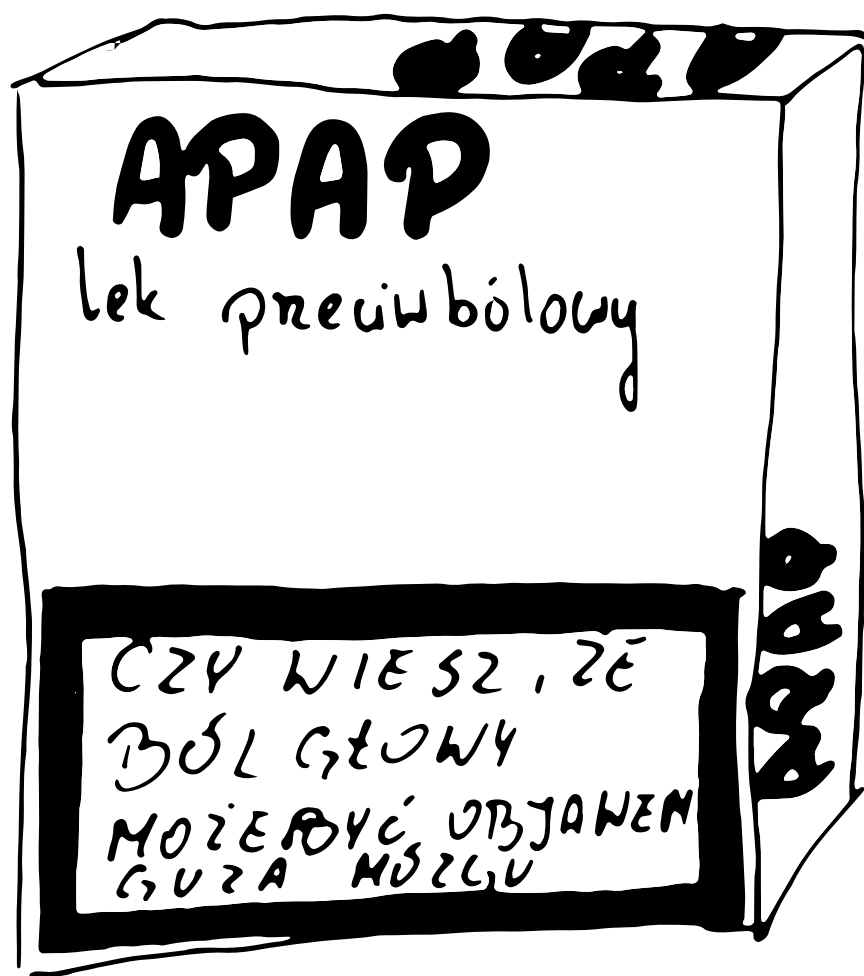 APAP
APAP
lek przeciwbólowy
APAP
CZY WIESZ, ŻE
BÓL GŁOWY
MOŻE BYĆ OBJAWEM
GUZA MÓZGU